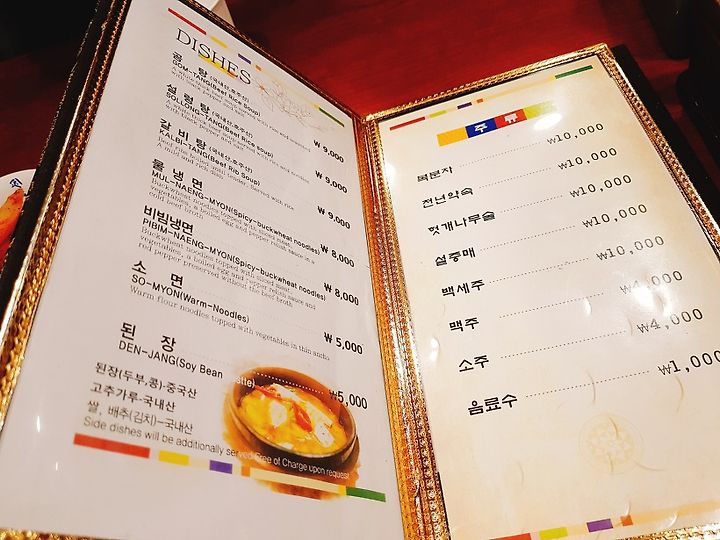 DISHES
곰 탕(국내산,호주산)
GOM-TANG(Beef Rice Soup)
₩ 9,000
설 렁 탕(국내산,호주산)
SOLLONG-TANG(Beef Rice Soup)
₩ 9,000
갈 비 탕(국내산,호주산)
KALBI-TANG(Beef Rib Soup)
₩ 9,000
물 냉 면
MUL-NAENG-MYON(Spicy-buckwheat noodles)
Buckwheat noodles topped
vegetables, a boiled egg and pepper relish sauce in a
cold beef broth
₩ 8,000
비빔냉면
PIBIM-NAENG-MYON(Spicy-buckwheat noodles)
Buckwheat noodles topped with sliced meat,
vegetables, a boiled egg and pepper relish sauce and
red pepper preserved without the beef broth
₩ 8,000
소 면
SO-MYON(Warm-Noodles)
Warm flour noodles topped with vegetables in thin
₩ 5,000
된 장
DEN-JANG(Soy Bean
₩5,000
된장(두부,콩)-중국산
고추가루-국내산
쌀, 배추(김치)-국내산
Side dishes will be additionally served Free of Charge upon request
주 류
복분자 ₩10,000
천년약속 ₩10,000
헛개나무술 ₩10,000
설중매 ₩10,000
백세주 ₩10,000
맥주 ₩4,000
소주 ₩4,000
음료수 ₩1,000